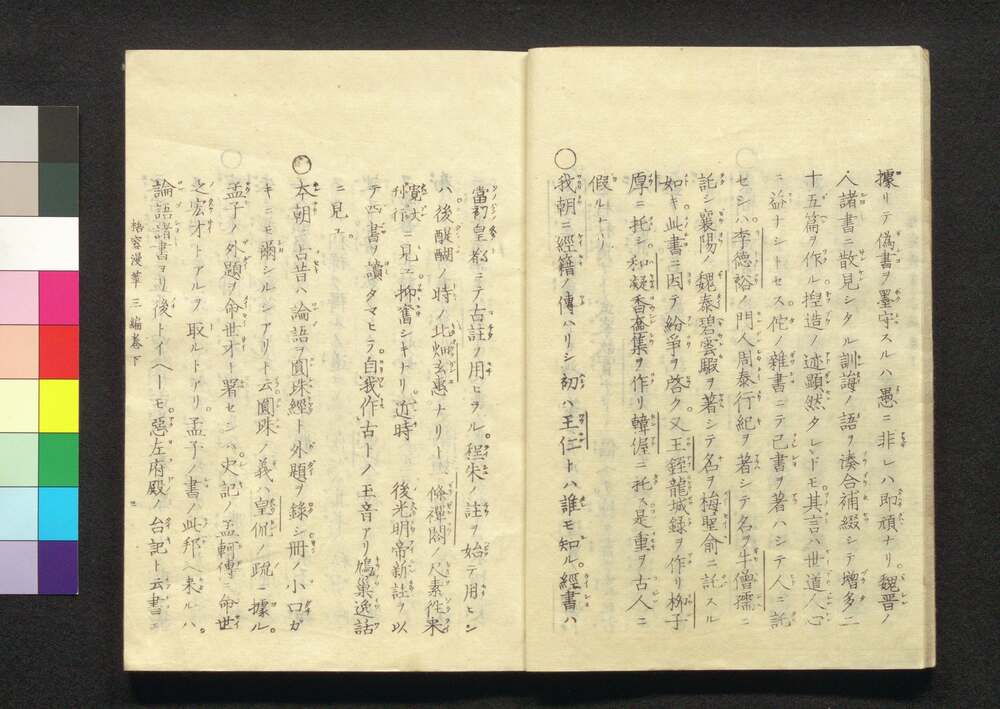 據リテ僞書ヲ墨守スルハ愚ニ非レハ即頑ナリ。魏晋ノ
人諸書ニ散見シタル訓誨ノ語ヲ湊合補綴シテ增多二
十五篇ヲ作ル揑造ノ迹顯然タレドモ其言ハ世道人心
ニ益ナシトセス佗ノ雜書ニテ己書ヲ著ハシテ人ニ託
セシハ李德裕ノ門人周秦行紀ヲ著シテ名ヲ牛僧孺ニ
託シ襄陽ノ魏泰碧雲騢ヲ著シテ名ヲ梅聖俞ニ託スル
如キ此書ニ因テ紛爭ヲ啓ク又王銍龍城録ヲ作リ柳子
厚ニ托シ。和凝香奩集ヲ作リ韓偓ニ托ス是重ヲ古人ニ
假ルナリ
○我朝ニ經籍ノ傳ハリシ初ハ王仁トハ誰モ知ル。經書ハ
當初皇都ニテ古註ノ用ヒラル。程朱ノ註ヲ始テ用ヒシ
ハ。後醍醐ノ時ノ北畑玄惠ナリ一條禪閤ノ尺素往來
寛文刊行ニ見ユ抑舊シキナリ。近時 後光明帝新註ヲ以
テ四書ヲ讀タマヒテ。自我作古トノ王音アリ鳩巣逸話
ニ見ユ。
○本朝ニ古昔ハ論語ヲ圓珠經ト外題ヲ錄シ冊ノ小口ガ
キニモ爾シルシアリト云圓珠ノ義ハ皇侃ノ疏ニ據ル。
孟子ノ外題ヲ命世才ト署セシハ。史記ノ孟軻傳ニ命世
之宏才トアルヲ取ルトナリ。孟子ノ書ノ此邦ヘ来ルハ。
論語諸書ヨリ後トイヘトモ。惡左府殿ノ台記ト云書ニ
三編巻下